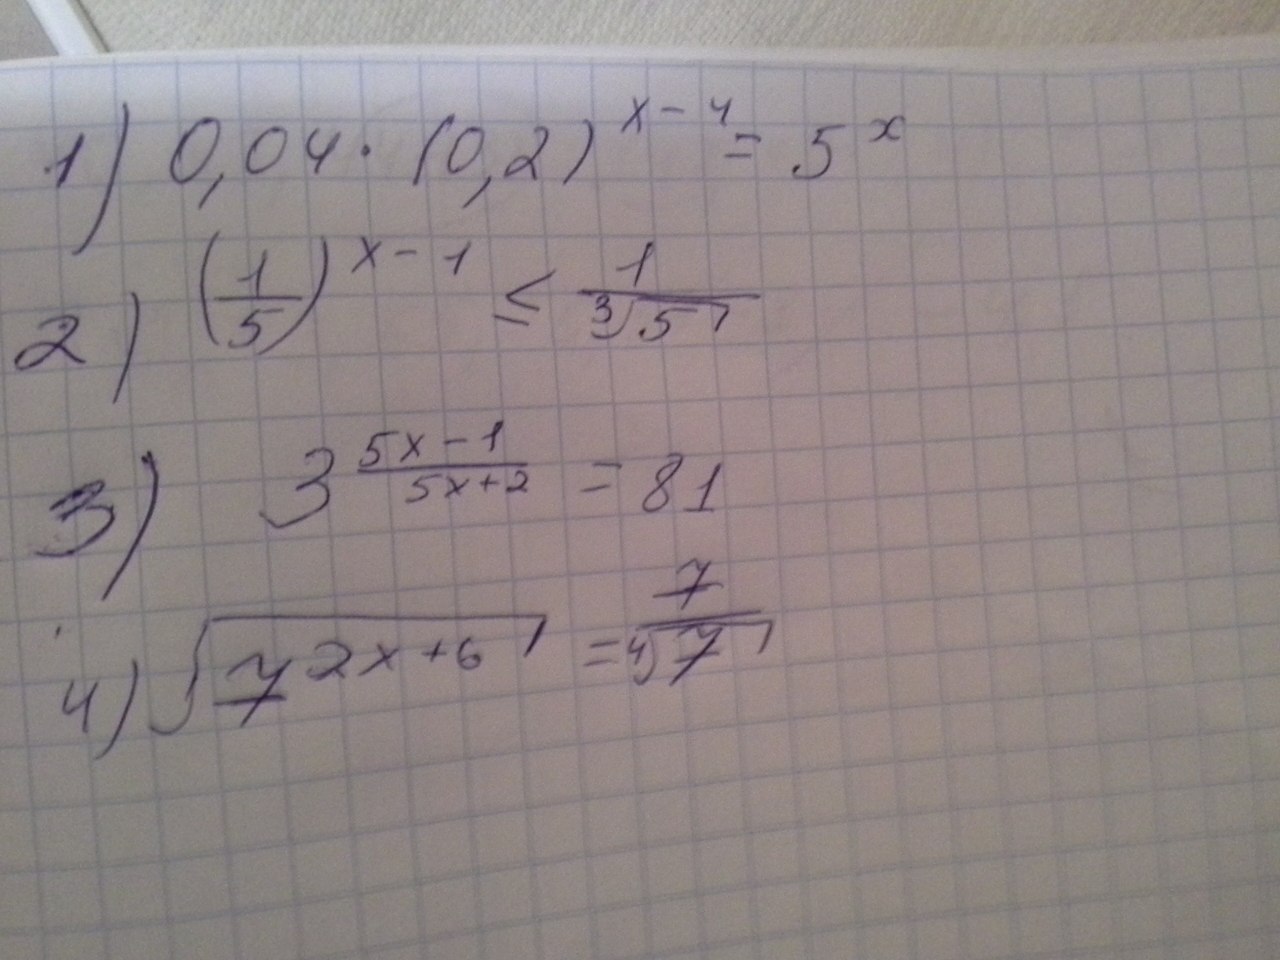 1) 0,04 · (0,2)^{x-4} = 5^x
2) (1/5)^{x-1} ≤ 1/∛5
3) 3^{(5x-1)/(5x+2)} = 81
4) √(7^{2x+6}) = 7/∜7